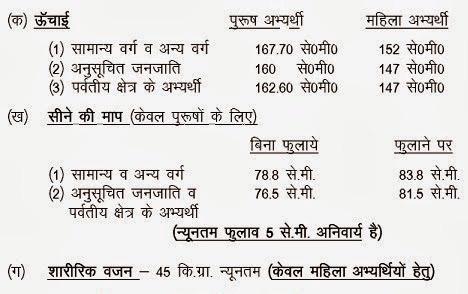 (क) ऊँचाई पुरूष अभ्यर्थी महिला अभ्यर्थी
(1) सामान्य वर्ग व अन्य वर्ग 167.70 से0मी0 152 से0मी0
(2) अनुसूचित जनजाति 160 से0मी0 147 से0मी0
(3) पर्वतीय क्षेत्र के अभ्यर्थी 162.60 से0मी0 147 से0मी0
(ख) सीने की माप (केवल पुरूषों के लिए)
बिना फुलाये फुलाने पर
(1) सामान्य व अन्य वर्ग 78.8 से.मी. 83.8 से.मी.
(2) अनुसूचित जनजाति व 76.5 से.मी. 81.5 से.मी.
पर्वतीय क्षेत्र के अभ्यर्थी
(न्यूनतम फुलाव 5 से.मी. अनिवार्य है)
(ग) शारीरिक वजन – 45 कि.ग्रा. न्यूनतम (केवल महिला अभ्यर्थियों हेतु)